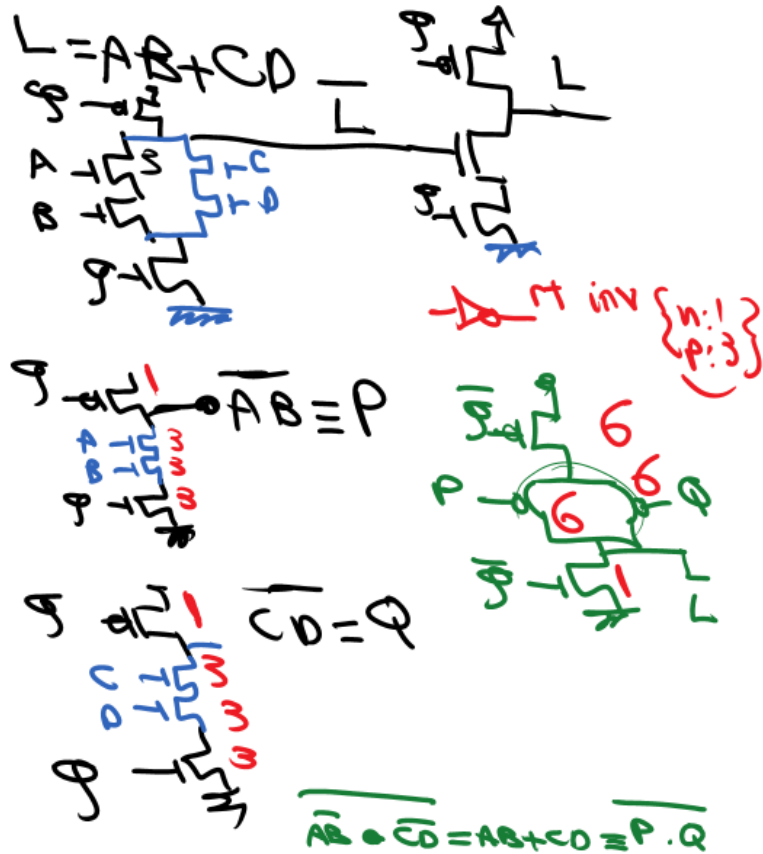 L = AB + CD
φ
A
B
3
C
D
φ
L̅
φ
L
φ
r4 inv {n:1
p:3}
φ
1
A̅B̅ ≡ P
A 3
B 3
φ 3
φ̅
6
P
6
6
Q
φ̅
1
L
φ
1
C̅D̅ = Q
C 3
D 3
φ 3
A̅B̅ • C̅D̅ = AB + CD ≡ P . Q